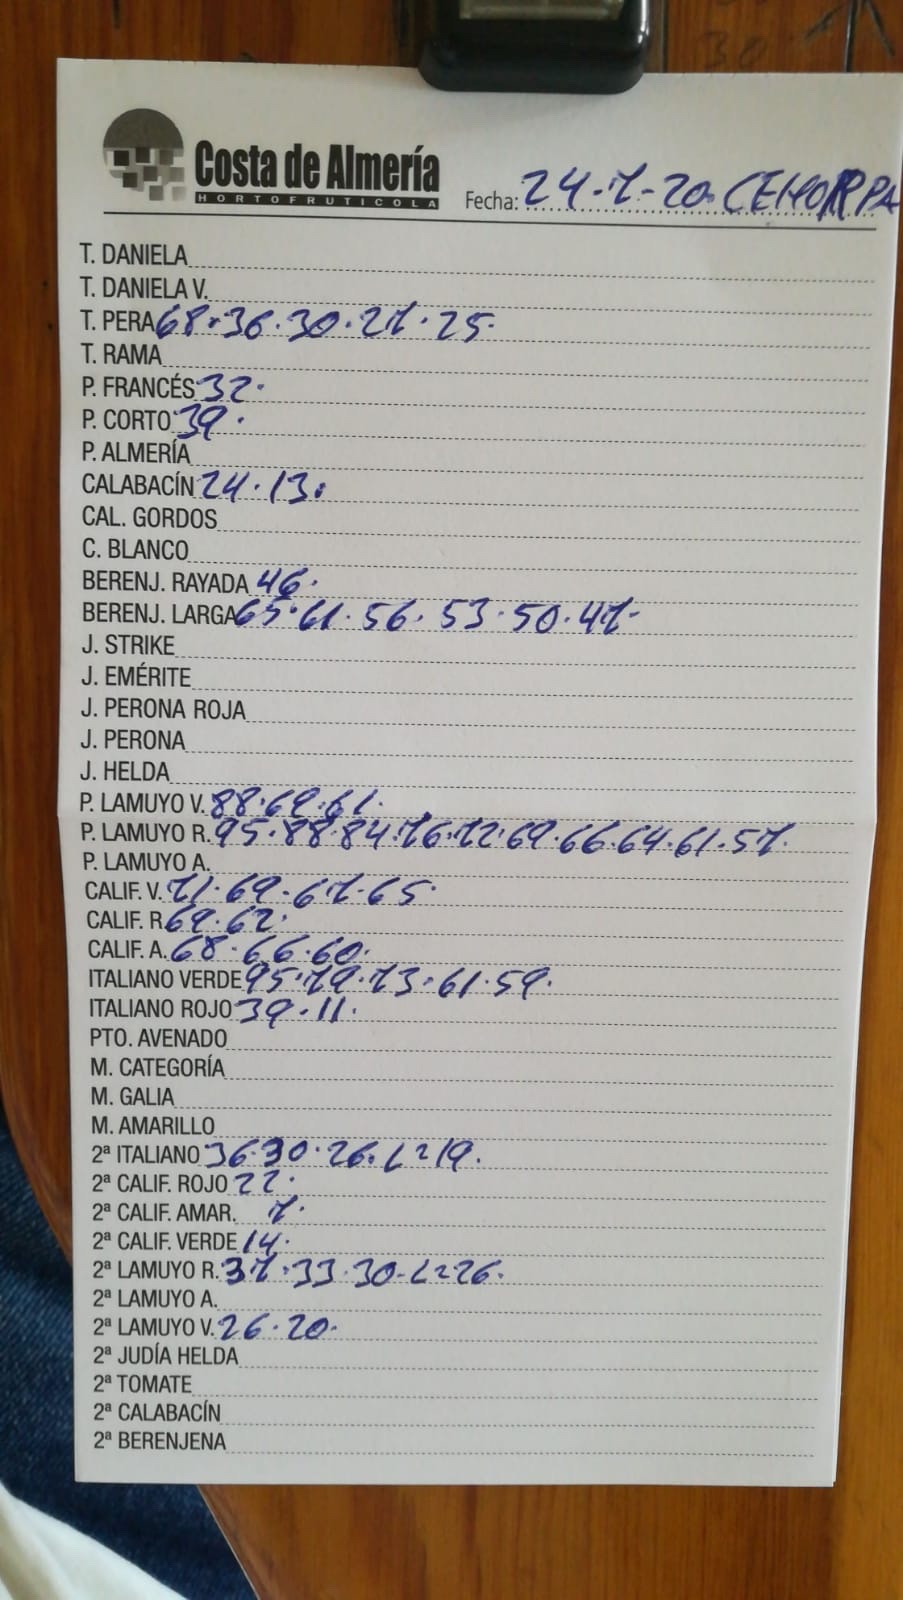 Costa de Almería
HORTOFRUTICOLA
Fecha: 24-7-20 CEHORPA
T. DANIELA
T. DANIELA V.
T. PERA 68.36.30.27.25.
T. RAMA
P. FRANCÉS 32.
P. CORTO 39.
P. ALMERÍA
CALABACÍN 24.13.
CAL. GORDOS
C. BLANCO
BERENJ. RAYADA 46.
BERENJ. LARGA 65.61.56.53.50.47-
J. STRIKE
J. EMÉRITE
J. PERONA ROJA
J. PERONA
J. HELDA
P. LAMUYO V. 88.69.61.
P. LAMUYO R. 95.88.84.76.72.69.66.64.61.57.
P. LAMUYO A.
CALIF. V. 71.69.67.65.
CALIF. R. 69.62.
CALIF. A. 68.66.60.
ITALIANO VERDE 95.79.73.61.59.
ITALIANO ROJO 39.11.
PTO. AVENADO
M. CATEGORÍA
M. GALIA
M. AMARILLO
2ª ITALIANO 36.30.26.L=19.
2ª CALIF. ROJO 22.
2ª CALIF. AMAR. 7.
2ª CALIF. VERDE 14.
2ª LAMUYO R. 37.33.30-L=26.
2ª LAMUYO A.
2ª LAMUYO V. 26.20.
2ª JUDÍA HELDA
2ª TOMATE
2ª CALABACÍN
2ª BERENJENA